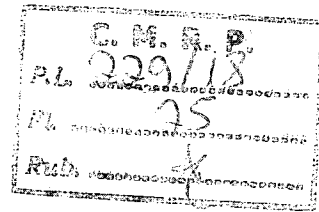 C. M. R. P.
P.L. 229/18
Fl. 75
Rub.